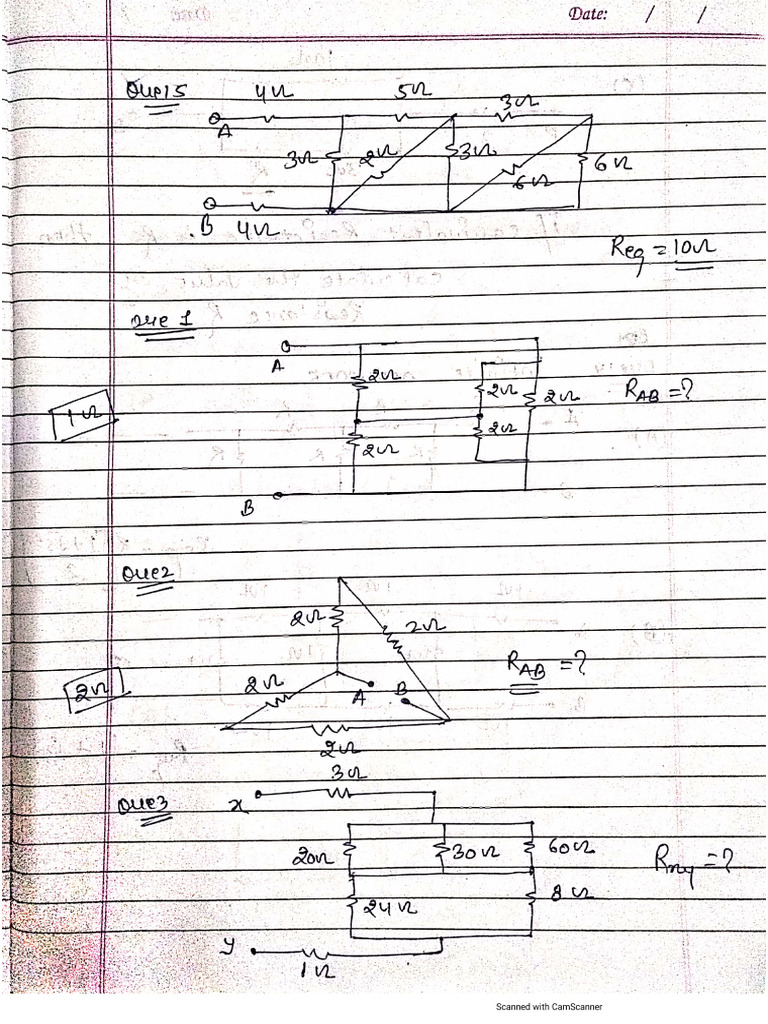 Date: / /
Que15
4Ω 5Ω 3Ω
A
3Ω 2Ω 3Ω 6Ω 6Ω
B 4Ω
Req = 10Ω
Que 1
A
2Ω 2Ω 2Ω RAB = ?
1Ω
2Ω 2Ω
B
Que2
2Ω 2Ω
RAB = ?
2Ω 2Ω A B
2Ω
3Ω
Que3 x
20Ω 30Ω 60Ω Rxy = ?
24Ω 8Ω
y
1Ω
Scanned with CamScanner